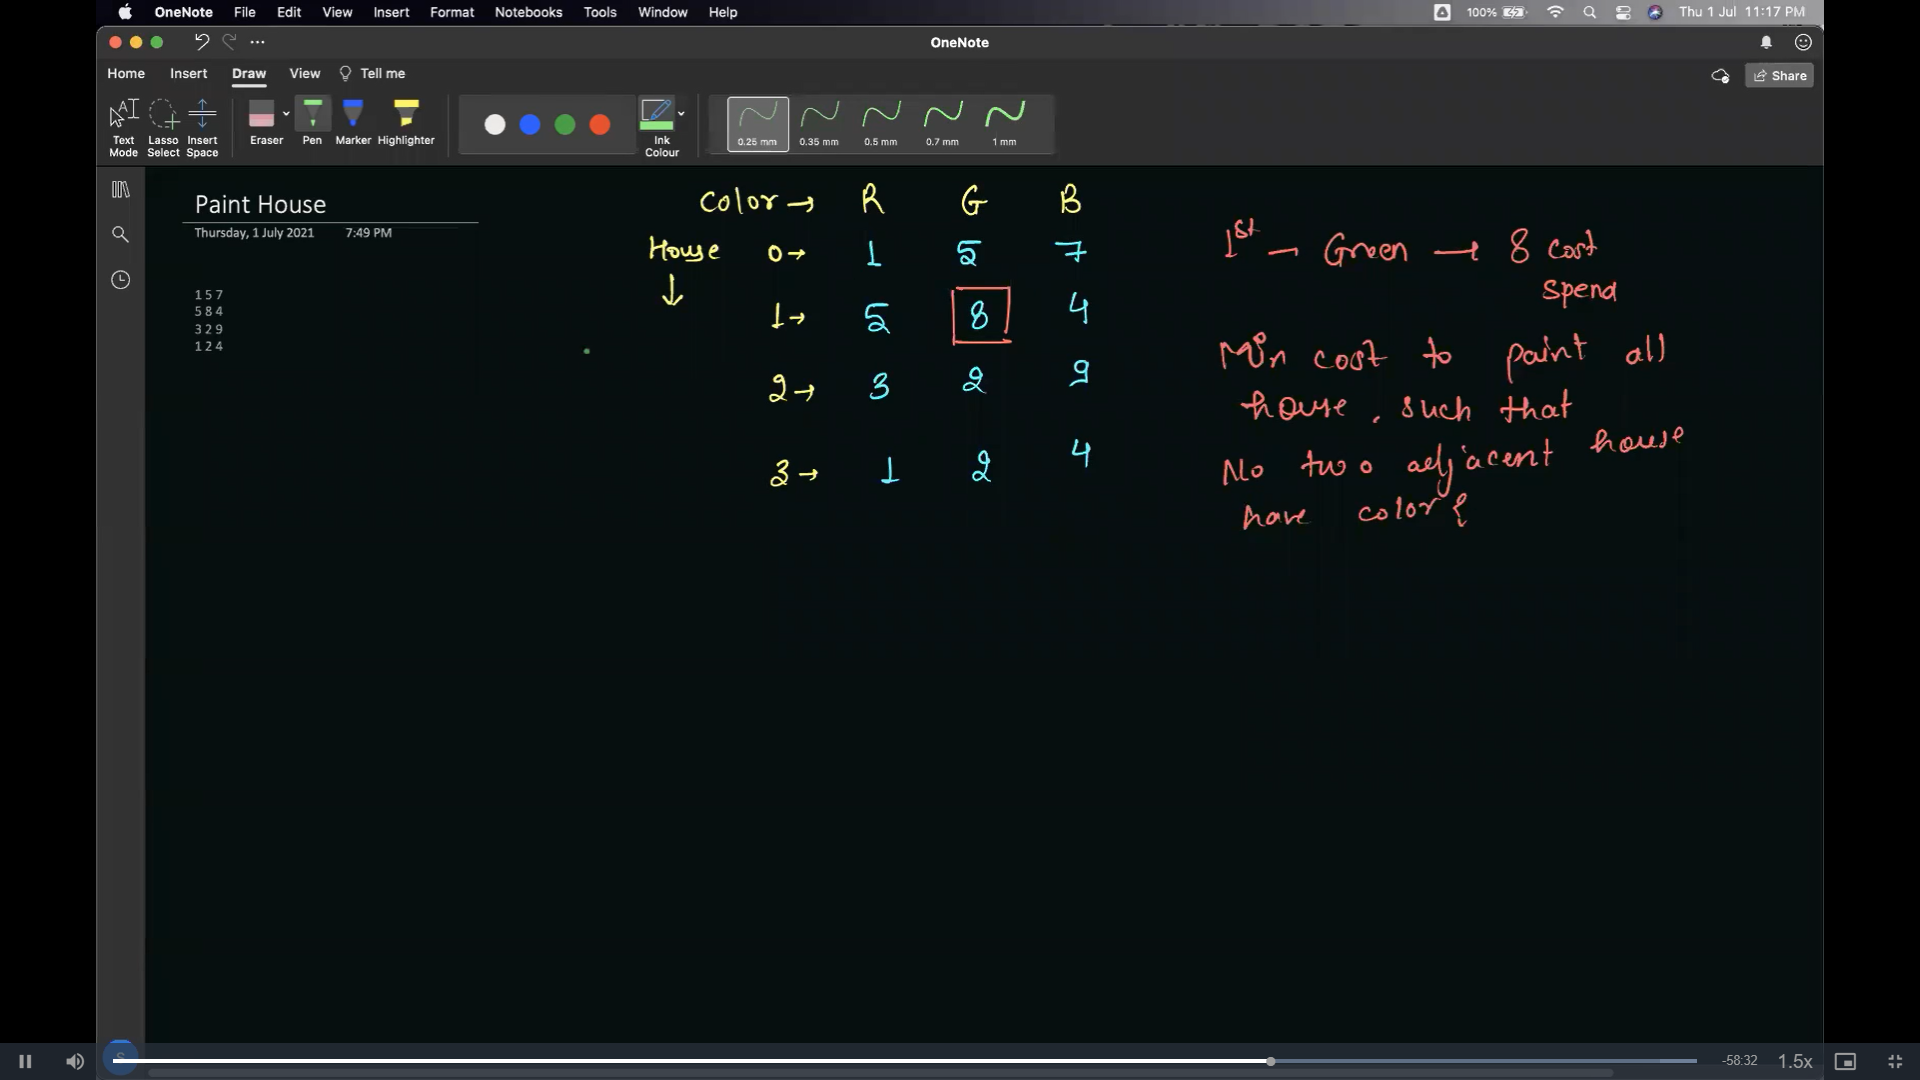 OneNote File Edit View Insert Format Notebooks Tools Window Help
100% Thu 1 Jul 11:17 PM
OneNote
Home Insert Draw View Tell me
Share
Text Mode
Lasso Select
Insert Space
Eraser
Pen
Marker
Highlighter
Ink Colour
0.25 mm
0.35 mm
0.5 mm
0.7 mm
1 mm
Paint House
Thursday, 1 July 2021 7:49 PM
1 5 7
5 8 4
3 2 9
1 2 4
Color → R G B
House 0→ 1 5 7
↓
1→ 5 8 4
2→ 3 2 9
3→ 1 2 4
1st — Green → 8 cost
spend
Min cost to paint all
house, such that
No two adjacent house
have color {
-58:32 1.5x